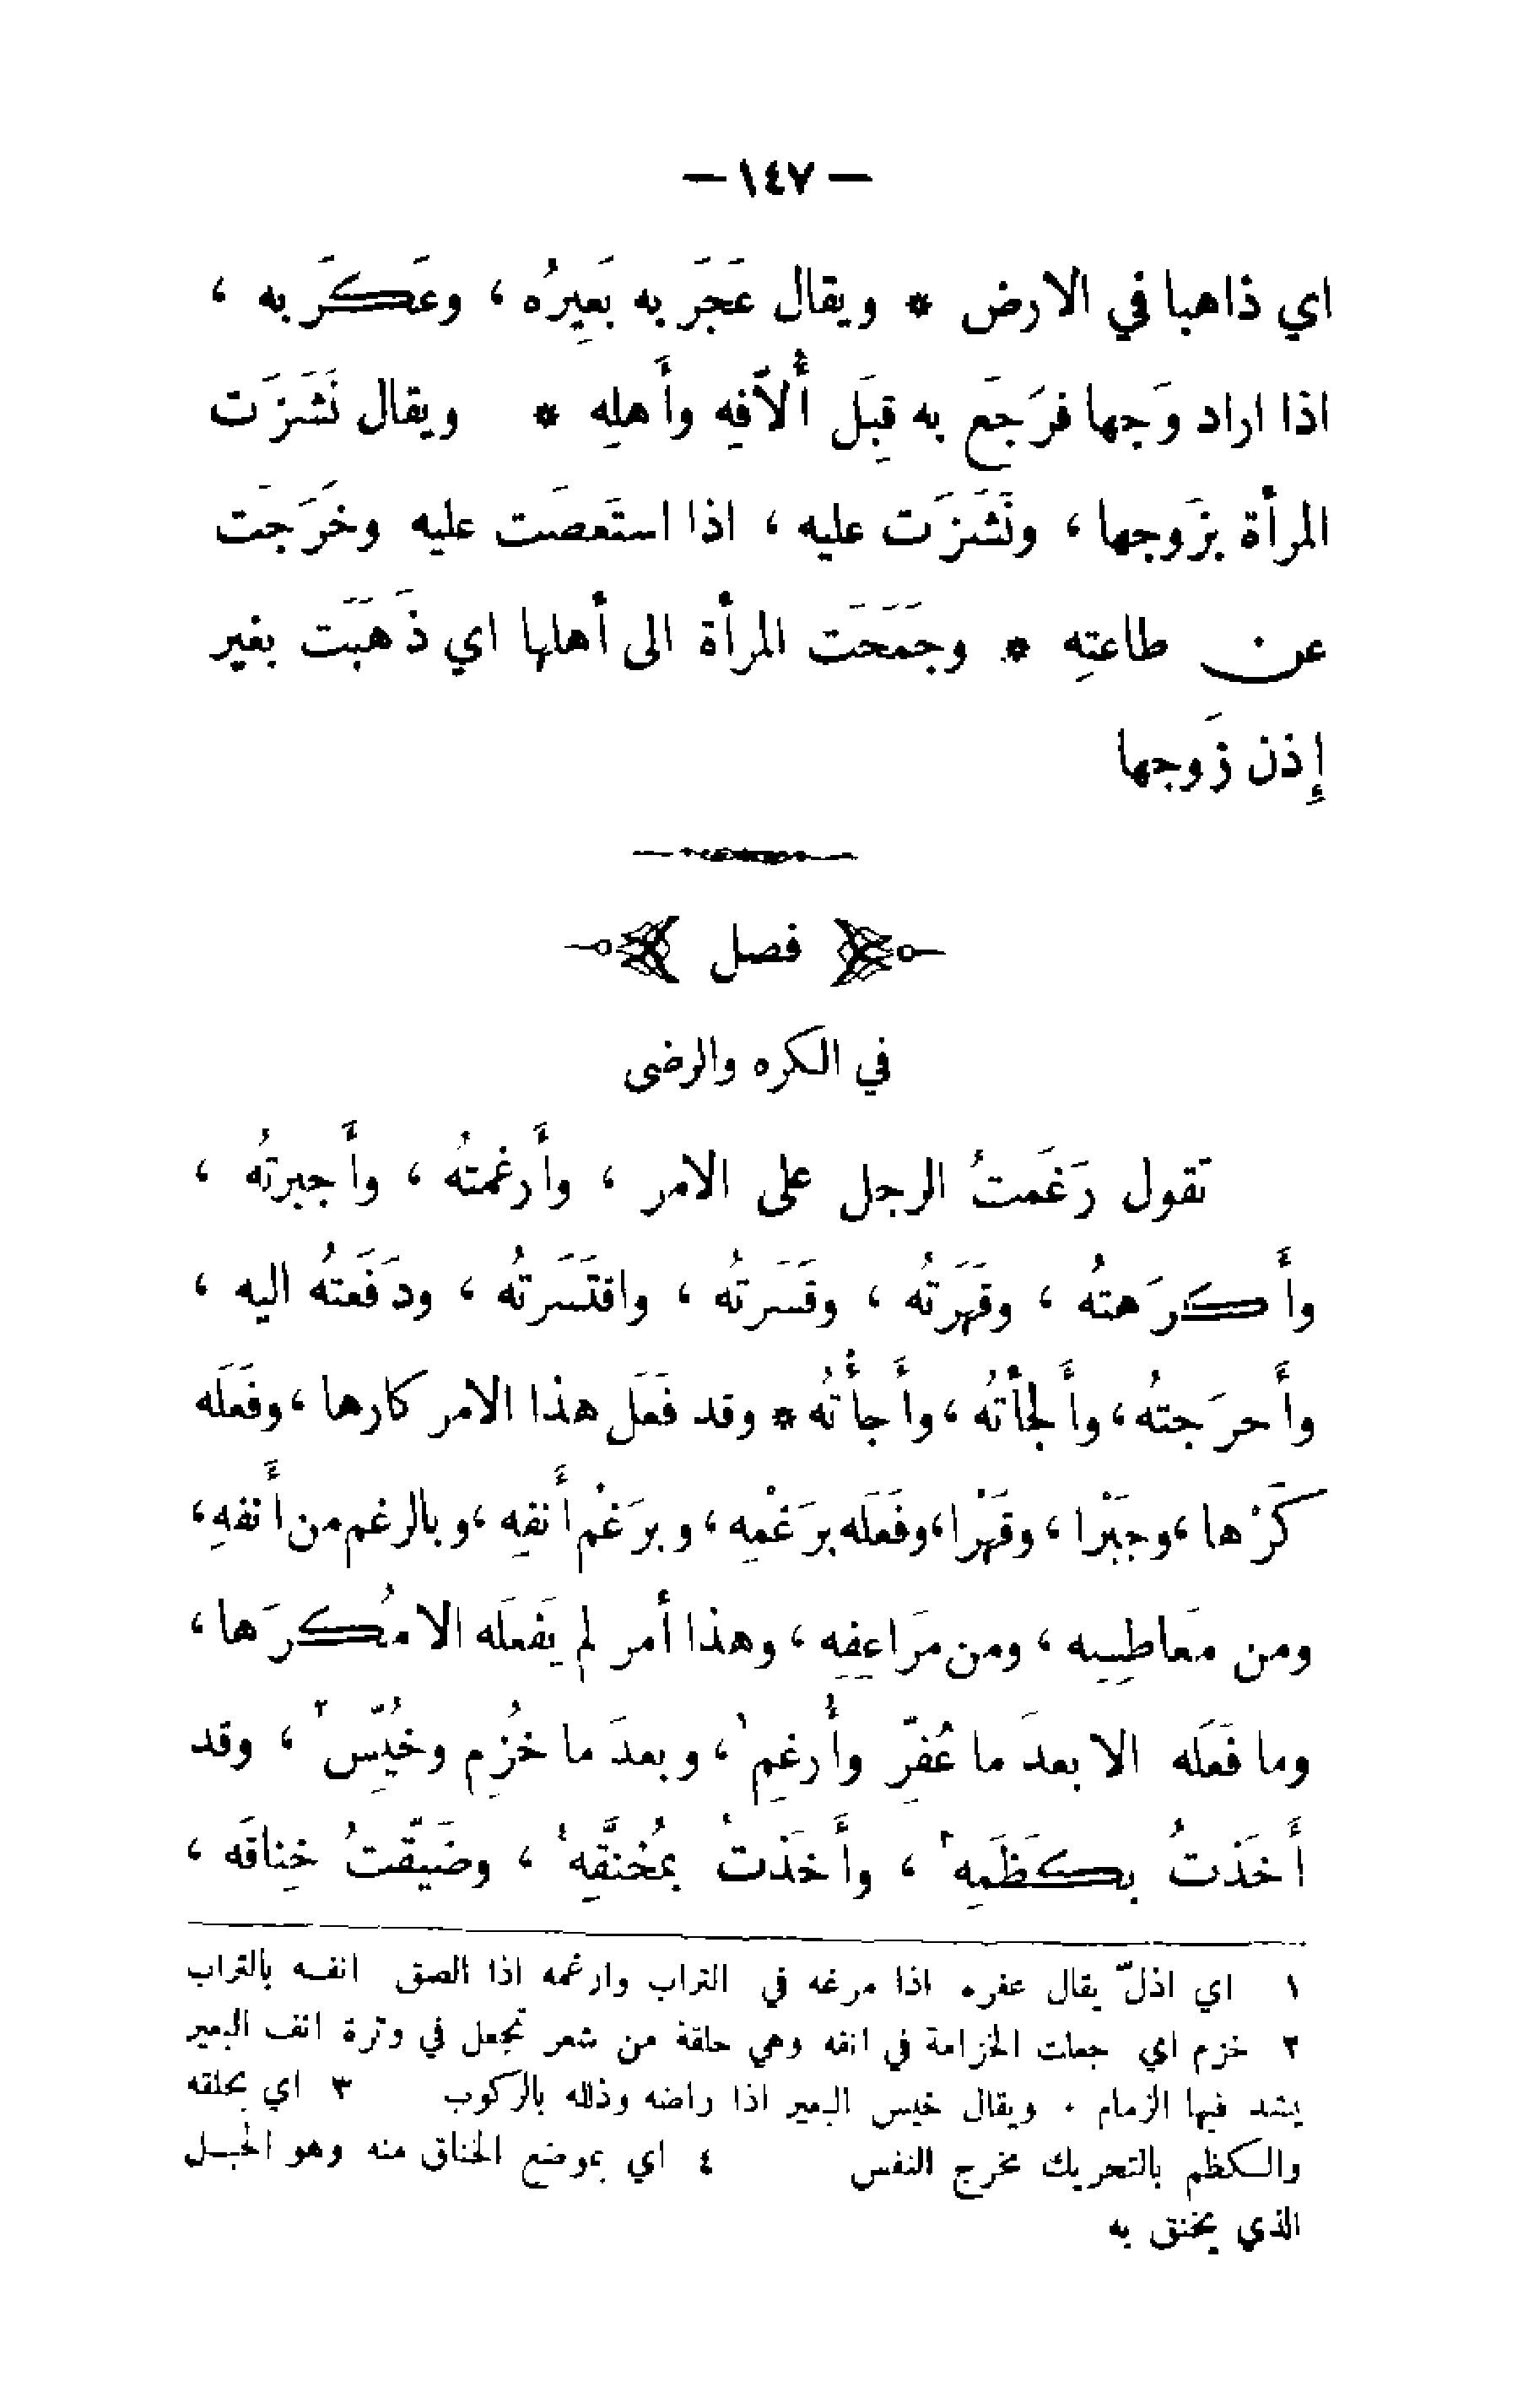 — ١٤٧ —
اي ذاهبا في الارض * ويقال عَجَرَ به بَعِيرُه ، وعَكَرَ به ،
اذا اراد وَجها فرَجَع به قِبَل أُلاَّفِه وأَهلِه * ويقال نَشَزَت
المرأة بزَوجها ، ونَشَزَت عليه ، اذا استَعصَت عليه وخَرَجَت
عن طاعتِه * وجَمَحَت المرأة الى أهلها اي ذَهَبَت بغير
إِذن زَوجها
فصل
في الكره والرضى
تقول رَغَمتُ الرجل على الامر ، وأَرغمتُه ، وأَجبرتُه ،
وأَكرَهتُه ، وقَهَرتُه ، وقَسَرتُه ، واقتَسَرتُه ، ودَفَعتُه اليه ،
وأَحرَجتُه ، وأَلجأتُه ، وأَجأْتُه * وقد فَعَل هذا الامر كارها ، وفَعَلَه
كَرْها ، وجَبْرا ، وقَهْرا ، وفَعَلَه برَغْمِه ، وبرَغْم أَنفِه ، وبالرغم من أَنفهِ ،
ومن مَعاطِسِه ، ومن مَراعِفِه ، وهذا أمر لم يَفعَلَه الا مُكرَها ،
وما فَعَلَه الا بعدَ ما عُفِّرَ وأُرغِم ١ ، وبعدَ ما خُزِم وخُيِّس ٢ ، وقد
أَخَذتُ بكَظَمِه ٣ ، وأَخَذتُ بمُخنَّقِه ٤ ، وضَيَّقتُ خِناقَه ،
١ اي اذلّ يقال عفره اذا مرغه في التراب وارغمه اذا الصق انفه بالتراب
٢ خزم اي جعلت الخزامة في انفه وهي حلقة من شعر تجعل في وترة انف البعير
يشد فيها الزمام . ويقال خيس البعير اذا راضه وذلله بالركوب ٣ اي بحلقه
والكظم بالتحريك مخرج النفس ٤ اي بموضع الخناق منه وهو الحبل
الذي يخنق به